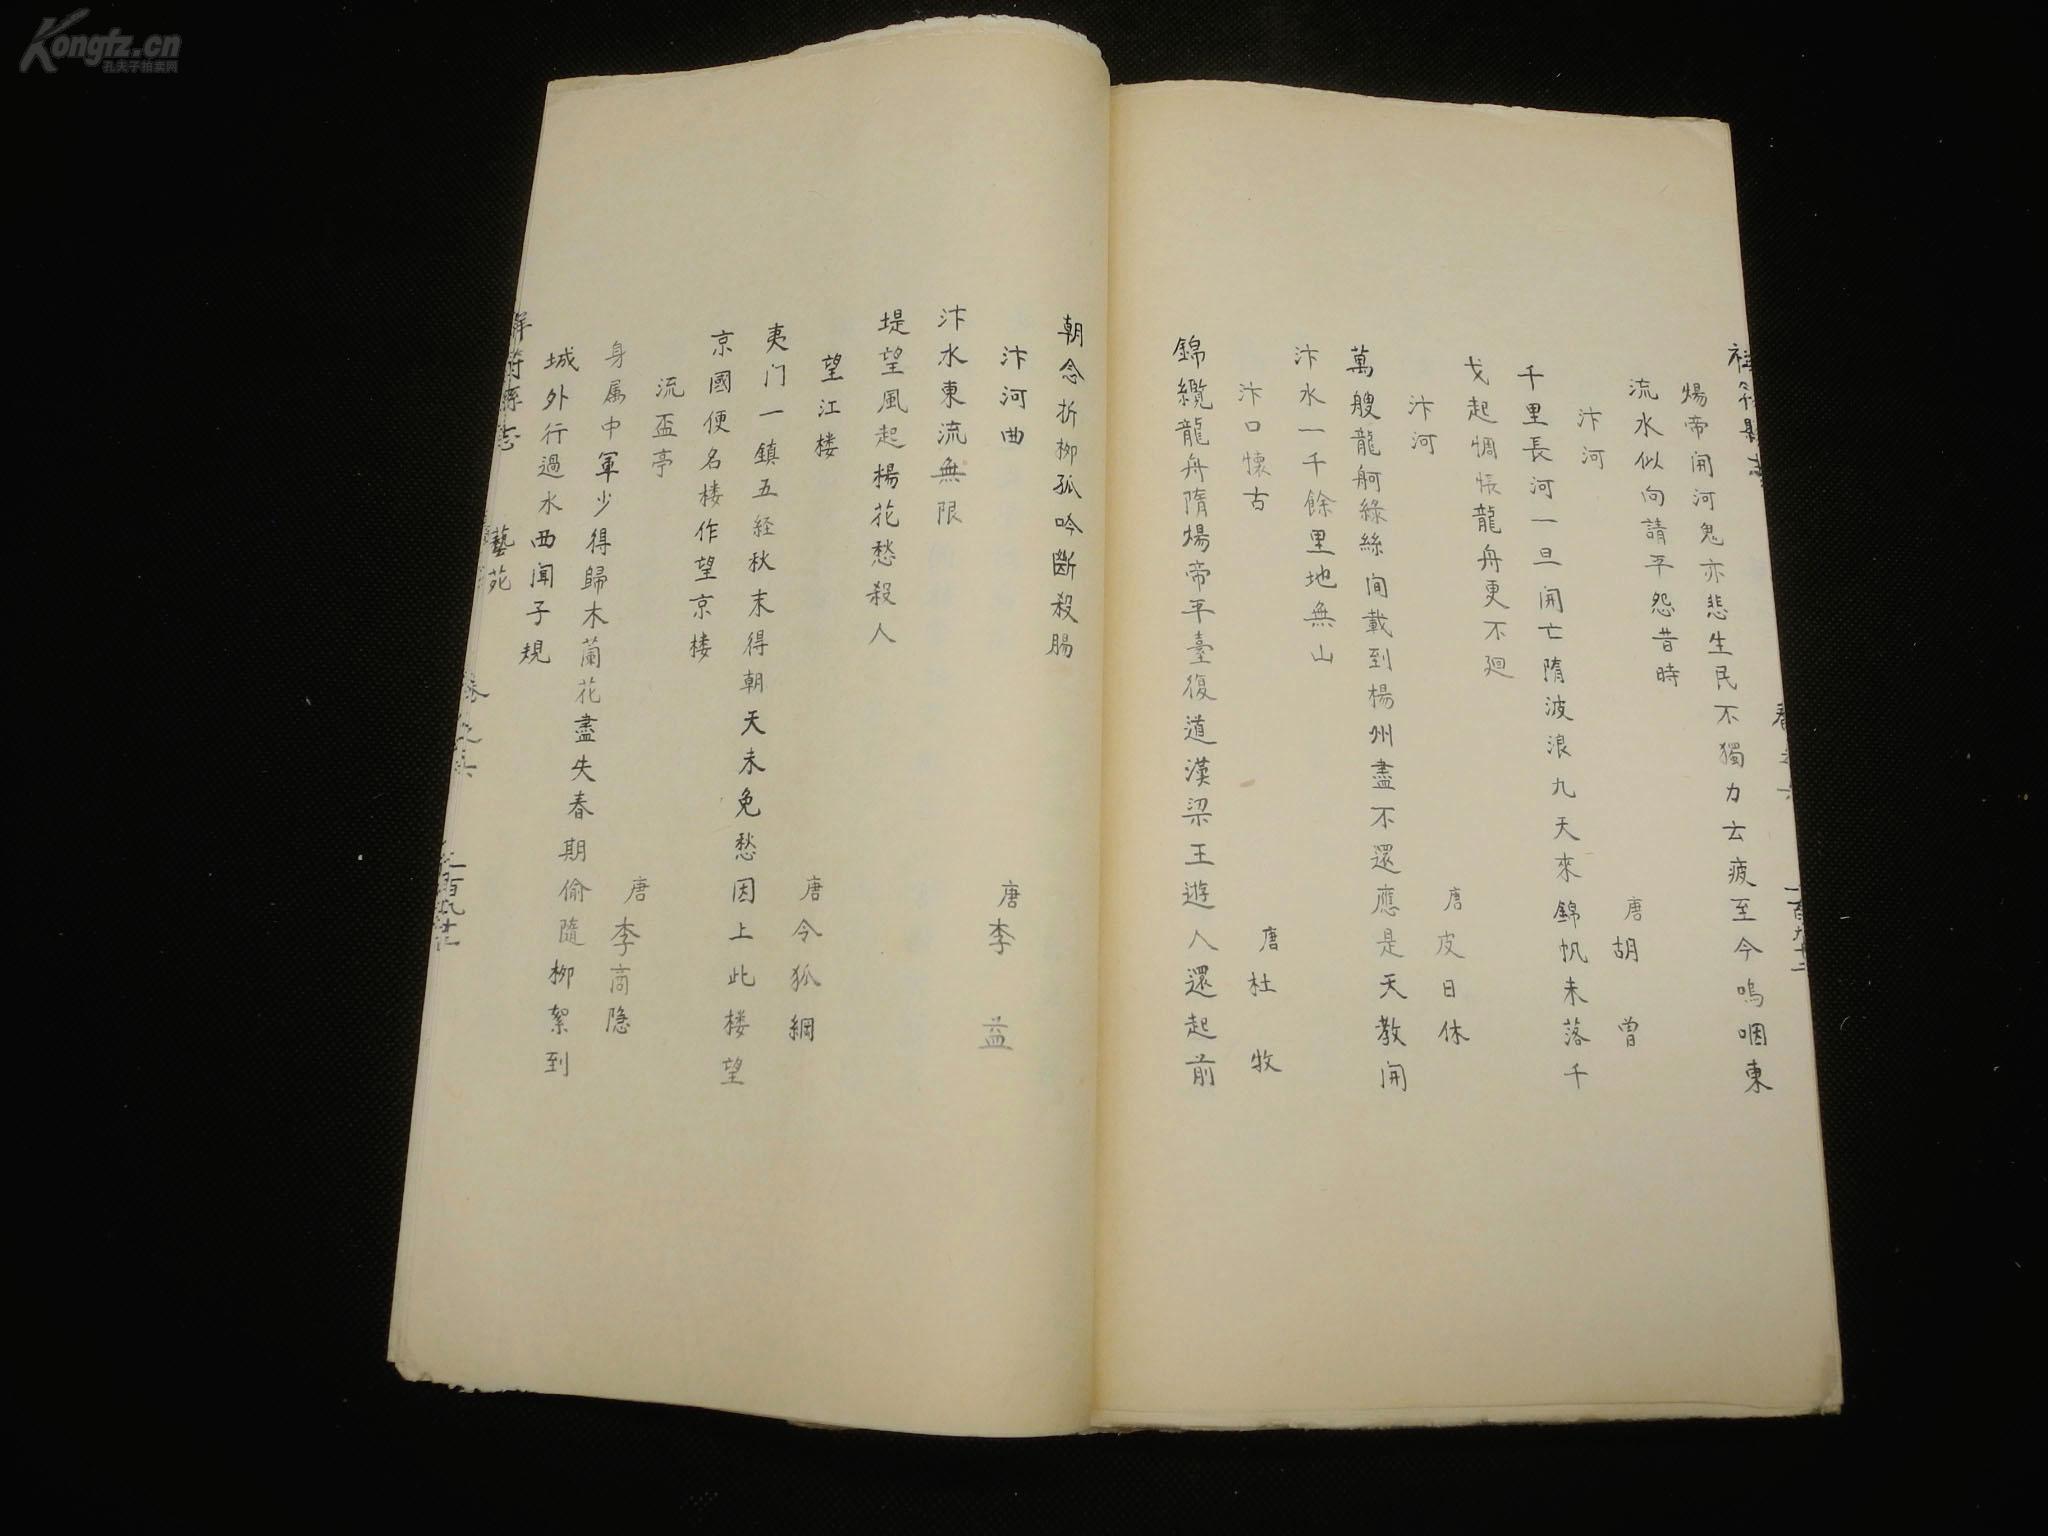 Kongfz.cn
孔夫子拍卖网
祥符縣志
煬帝開河鬼亦悲生民不獨力云疲至今嗚咽東
流水似向請平怨昔時
汴河
唐胡曾
千里長河一旦開亡隋波浪九天來錦帆未落千
戈起惆悵龍舟更不迴
汴河
唐皮日休
萬艘龍舸綠絲间載到楊州盡不還應是天教開
汴水一千餘里地無山
汴口懷古
唐杜牧
錦纜龍舟隋煬帝平臺復道漢梁王遊人還起前
朝念折柳孤吟斷殺腸
汴河曲
唐李益
汴水東流無限
堤望風起楊花愁殺人
望江楼
唐令狐綯
夷门一鎮五経秋末得朝天未免愁因上此楼望
京國便名楼作望京楼
流盃亭
唐李商隐
身属中軍少得歸木蘭花盡失春期偷隨柳絮到
城外行過水西闻子規
祥符縣志
藝苑
卷之六